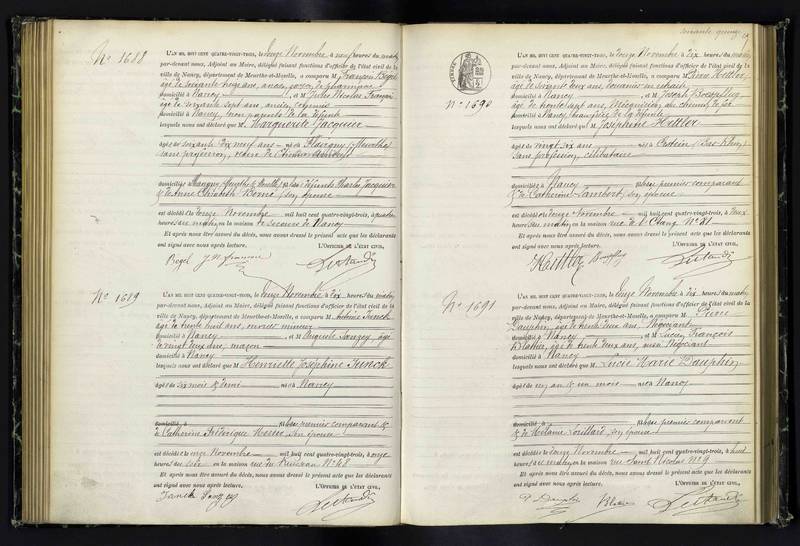 Nº 1688
L'AN MIL HUIT CENT QUATRE-VINGT-TROIS, le onze Novembre à neuf heures du matin
par-devant nous, Adjoint au Maire, délégué faisant fonctions d'officier de l'état civil de la
ville de Nancy, département de Meurthe-et-Moselle, a comparu M. François Bogel
âgé de soixante
domicilié à Nancy et M. Jules Nicolas François
âgé de soixante sept ans, ancien commis
domicilié à Nancy, non parents de la défunte
lesquels nous ont déclaré que M. Marguerite Jacquier
âgée de soixante dix neuf ans née à Flavigny (Meurthe)
sans profession, veuve de
domiciliée fille des défunts Charles Jacquier
& de Anne Elisabeth son épouse
est décédée le onze Novembre mil huit cent quatre-vingt-trois, à quatre
heures du matin en la maison de secours de Nancy
Et après nous être assuré du décès, nous avons dressé le présent acte que les déclarants
ont signé avec nous après lecture. L'OFFICIER DE L'ÉTAT CIVIL,
Nº 1689
L'AN MIL HUIT CENT QUATRE-VINGT-TROIS, le onze Novembre à dix heures du matin
par-devant nous, Adjoint au Maire, délégué faisant fonctions d'officier de l'état civil de la
ville de Nancy, département de Meurthe-et-Moselle, a comparu M. Antoine Junck
âgé de trente huit ans, ouvrier mineur
domicilié à Nancy et M. Auguste âgé
de vingt deux ans, maçon
domicilié à Nancy
lesquels nous ont déclaré que M. Henriette Joséphine Junck
âgée de six mois & demi née à Nancy
domiciliée à fille du premier comparant &
de Catherine Frédérique son épouse
est décédée le onze Novembre mil huit cent quatre-vingt-trois, à onze
heures du soir en la maison rue du Ruisseau Nº 48
Et après nous être assuré du décès, nous avons dressé le présent acte que les déclarants
ont signé avec nous après lecture. L'OFFICIER DE L'ÉTAT CIVIL,
Junck
soixante quinze
Nº 1690
L'AN MIL HUIT CENT QUATRE-VINGT-TROIS, le onze Novembre à dix heures du matin
par-devant nous, Adjoint au Maire, délégué faisant fonctions d'officier de l'état civil de la
ville de Nancy, département de Meurthe-et-Moselle, a comparu M. Hettler
âgé de soixante deux ans, douanier en retraite
domicilié à Nancy et M. Joseph
âgé de trente sept ans, Mécanicien au chemin de fer
domicilié à Nancy, beau frère de la défunte
lesquels nous ont déclaré que M. Joséphine Hettler
âgée de vingt six ans née à Erstein (Bas Rhin)
sans profession, célibataire
domiciliée à Nancy fille du premier comparant
& de Catherine Lambert, son épouse
est décédée le onze Novembre mil huit cent quatre-vingt-trois, à deux
heures du matin en la maison rue de l'Etang Nº 21
Et après nous être assuré du décès, nous avons dressé le présent acte que les déclarants
ont signé avec nous après lecture. L'OFFICIER DE L'ÉTAT CIVIL,
Nº 1691
L'AN MIL HUIT CENT QUATRE-VINGT-TROIS, le onze Novembre à dix heures du matin
par-devant nous, Adjoint au Maire, délégué faisant fonctions d'officier de l'état civil de la
ville de Nancy, département de Meurthe-et-Moselle, a comparu M. Pierre
Dauphin, âgé de trente deux ans, Négociant
domicilié à Nancy et M. Lucien François
âgé de trente deux ans, aussi Négociant
domicilié à Nancy
lesquels nous ont déclaré que M. Lucie Marie Dauphin
âgée de un an & un mois née à Nancy
domiciliée à fille du premier comparant
& de Mélanie son épouse
est décédée le onze Novembre mil huit cent quatre-vingt-trois, à huit
heures du matin en la maison rue Saint Nicolas Nº 9
Et après nous être assuré du décès, nous avons dressé le présent acte que les déclarants
ont signé avec nous après lecture. L'OFFICIER DE L'ÉTAT CIVIL,
P. Dauphin